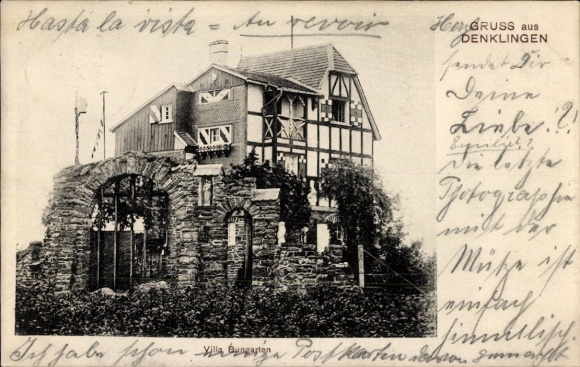 Hasta la vista = Au revoir
GRUSS aus
DENKLINGEN
sendet Dir
Deine
Liebe
Die letzte
Photographie
mit der
Mütze ist
einfach
Villa Bungarten
Ich habe schon einige Postkarten davon gemacht